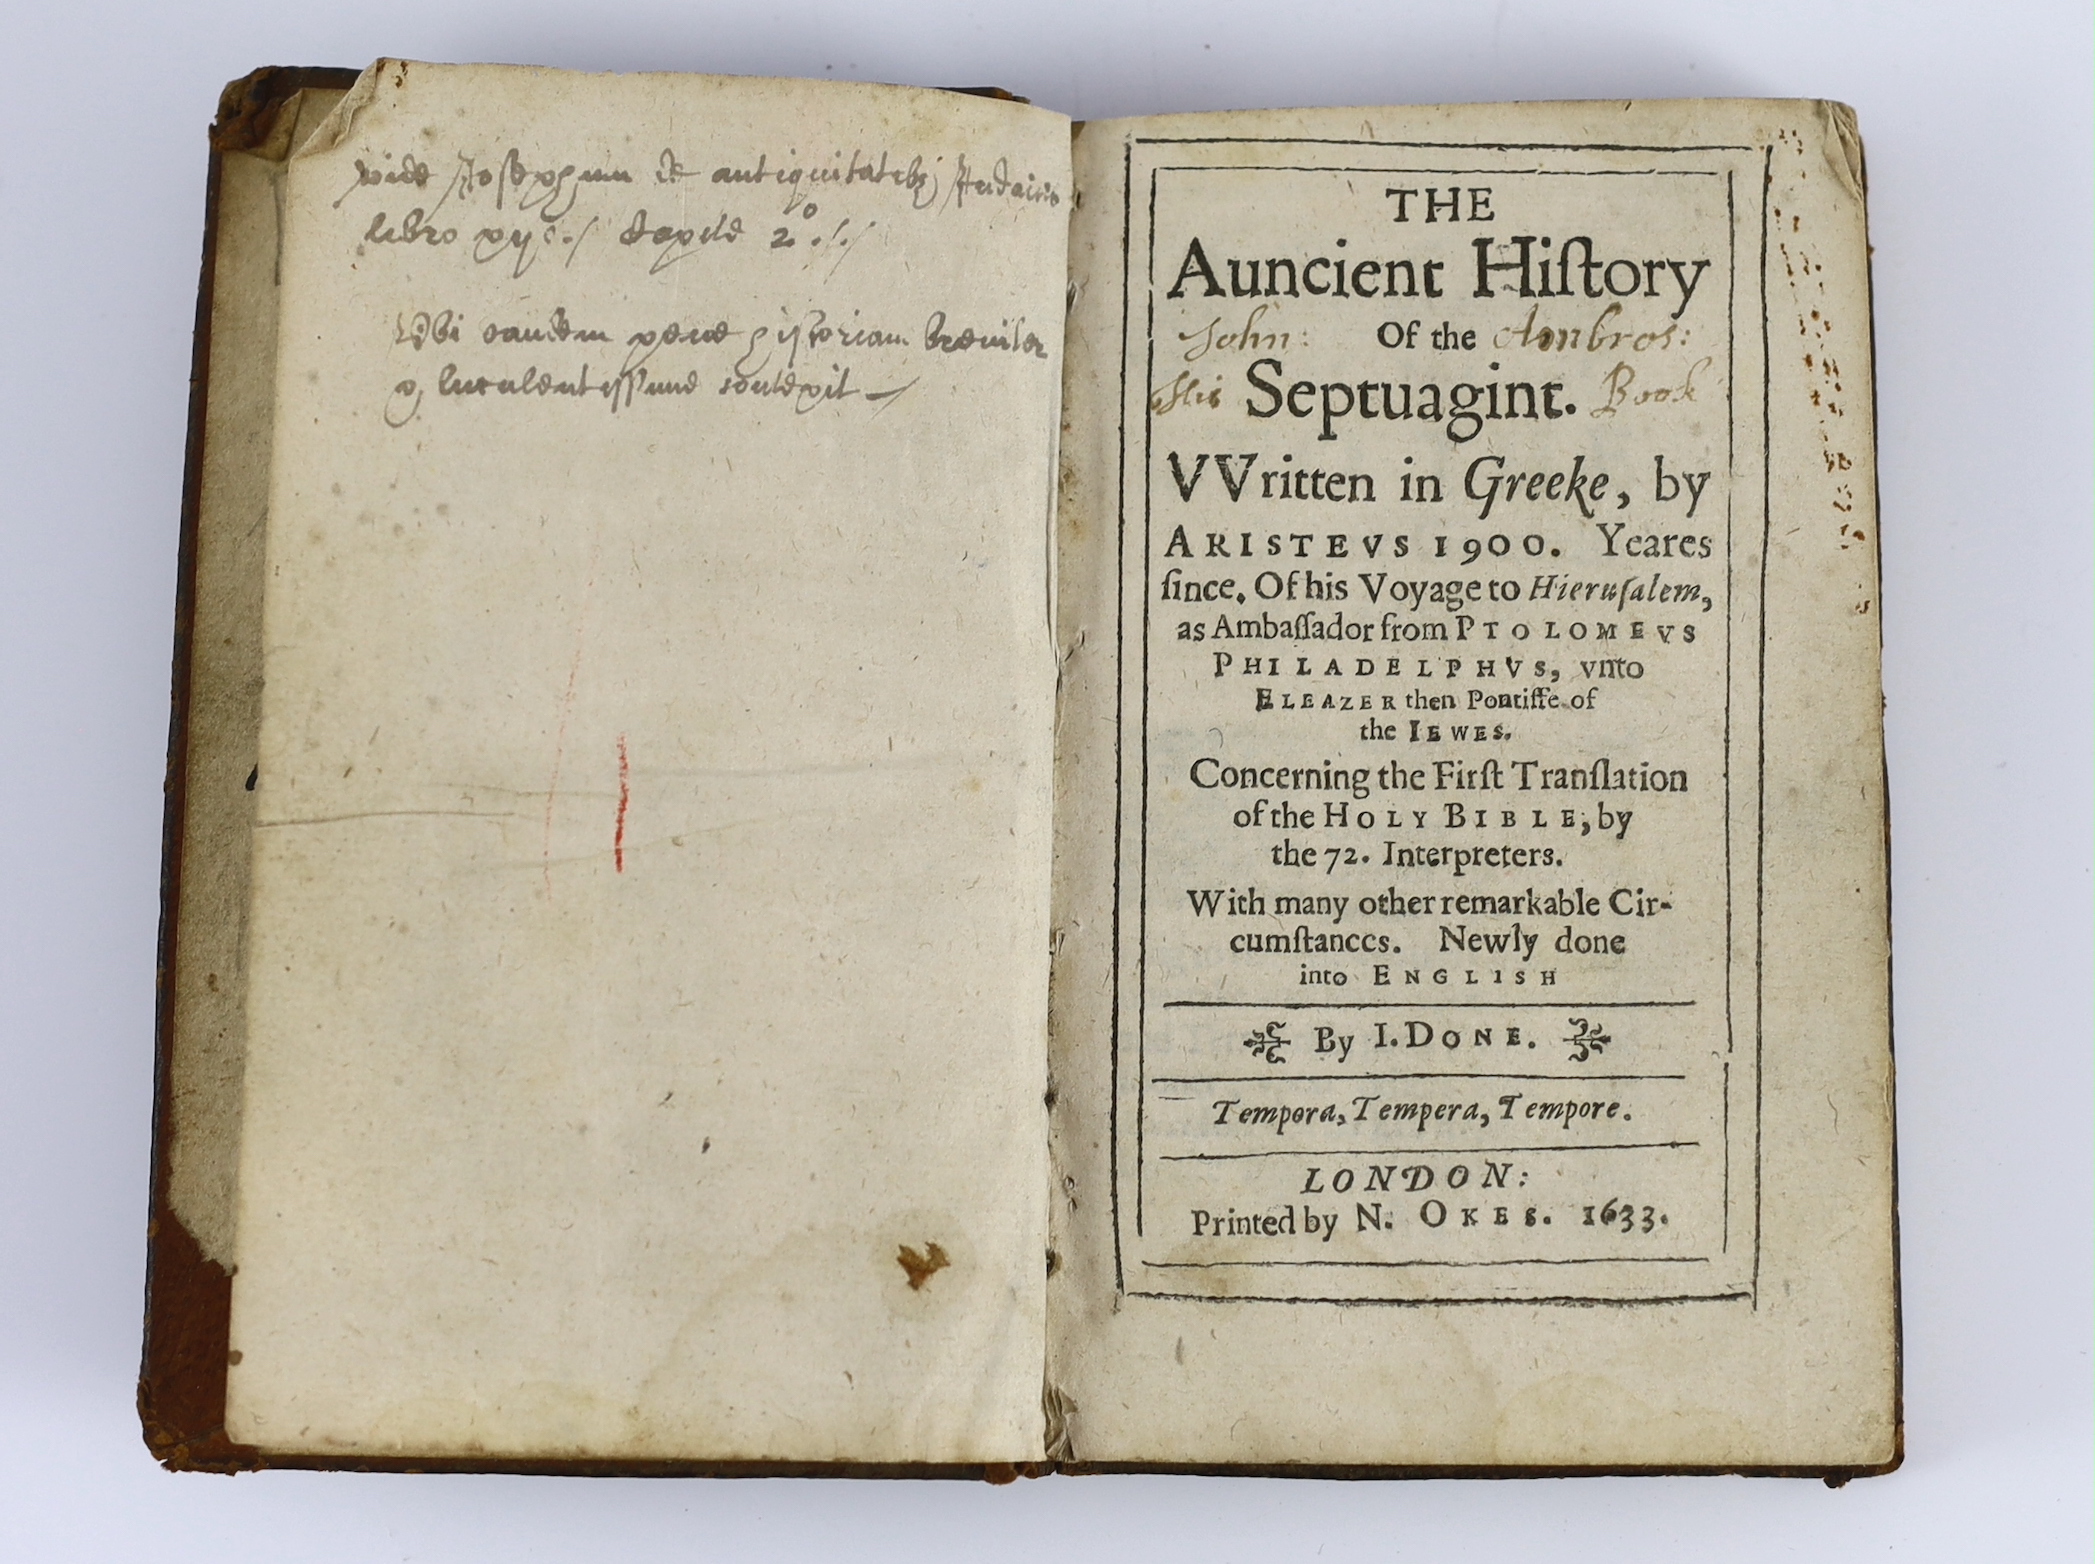 vide Josephum de antiquitatibꝫ Judaicis
libro xijo ./ Capite 2o ./.
Ubi eandem pene historiam breuiter
& luculentissime contexit
THE
Auncient Hiſtory
John: Of the Ambros:
His Septuagint. Book
VVritten in Greeke, by
ARISTEVS 1900. Yeares
ſince. Of his Voyage to Hieruſalem,
as Ambaſſador from PTOLOMEVS
PHILADELPHVS, vnto
ELEAZER then Pontiffe of
the IEWES.
Concerning the Firſt Tranſlation
of the HOLY BIBLE, by
the 72. Interpreters.
With many other remarkable Cir-
cumſtances. Newly done
into ENGLISH
By I. DONE.
Tempora, Tempera, Tempore.
LONDON:
Printed by N. OKES. 1633.